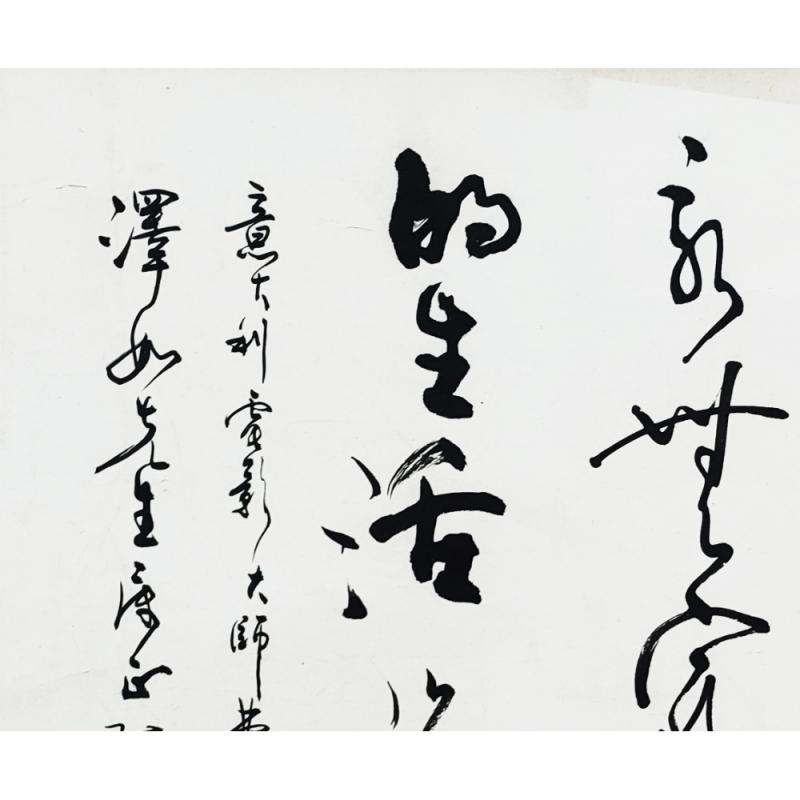 永無
的生活
意大利電影大師費
澤如先生正